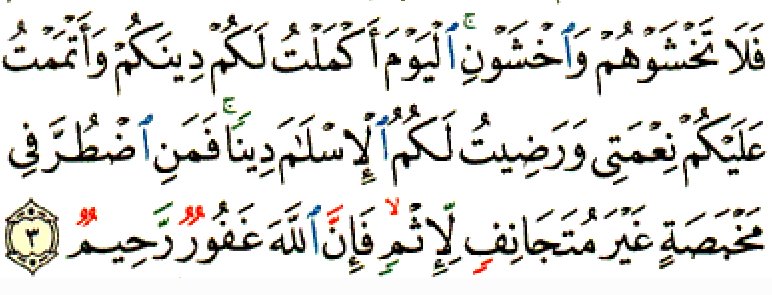 فَلَا تَخْشَوْهُمْ وَٱخْشَوْنِ ۚ ٱلْيَوْمَ أَكْمَلْتُ لَكُمْ دِينَكُمْ وَأَتْمَمْتُ
عَلَيْكُمْ نِعْمَتِى وَرَضِيتُ لَكُمُ ٱلْإِسْلَٰمَ دِينًا ۚ فَمَنِ ٱضْطُرَّ فِى
مَخْمَصَةٍ غَيْرَ مُتَجَانِفٍ لِّإِثْمٍ ۙ فَإِنَّ ٱللَّهَ غَفُورٌ رَّحِيمٌ ٣